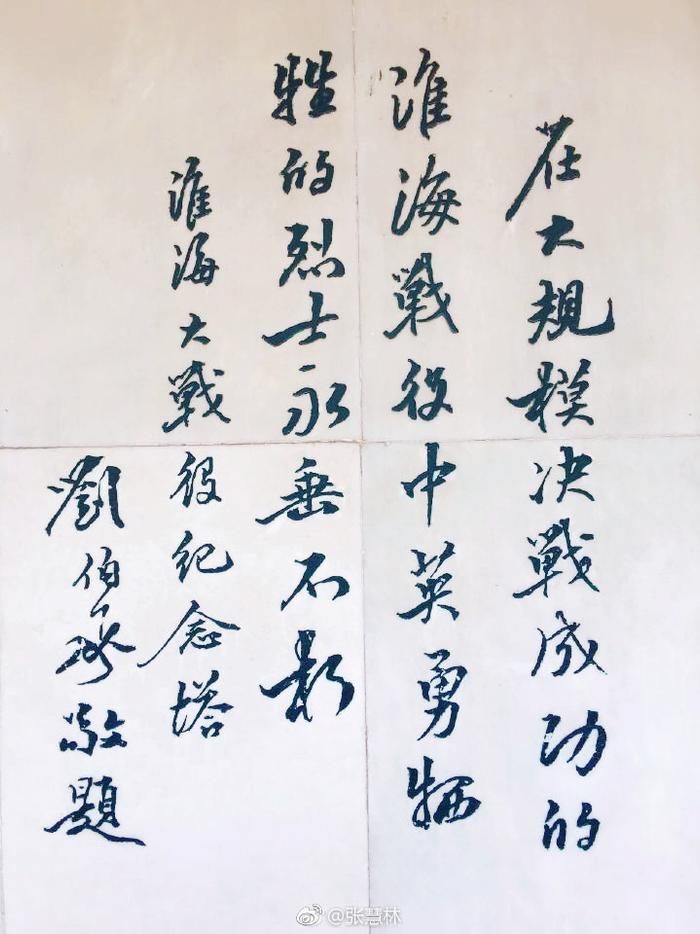 在大規模决戰成功的
淮海戰役中英勇牺
牲的烈士永垂不朽
淮海大戰役纪念塔
劉伯承敬題
@张慧林